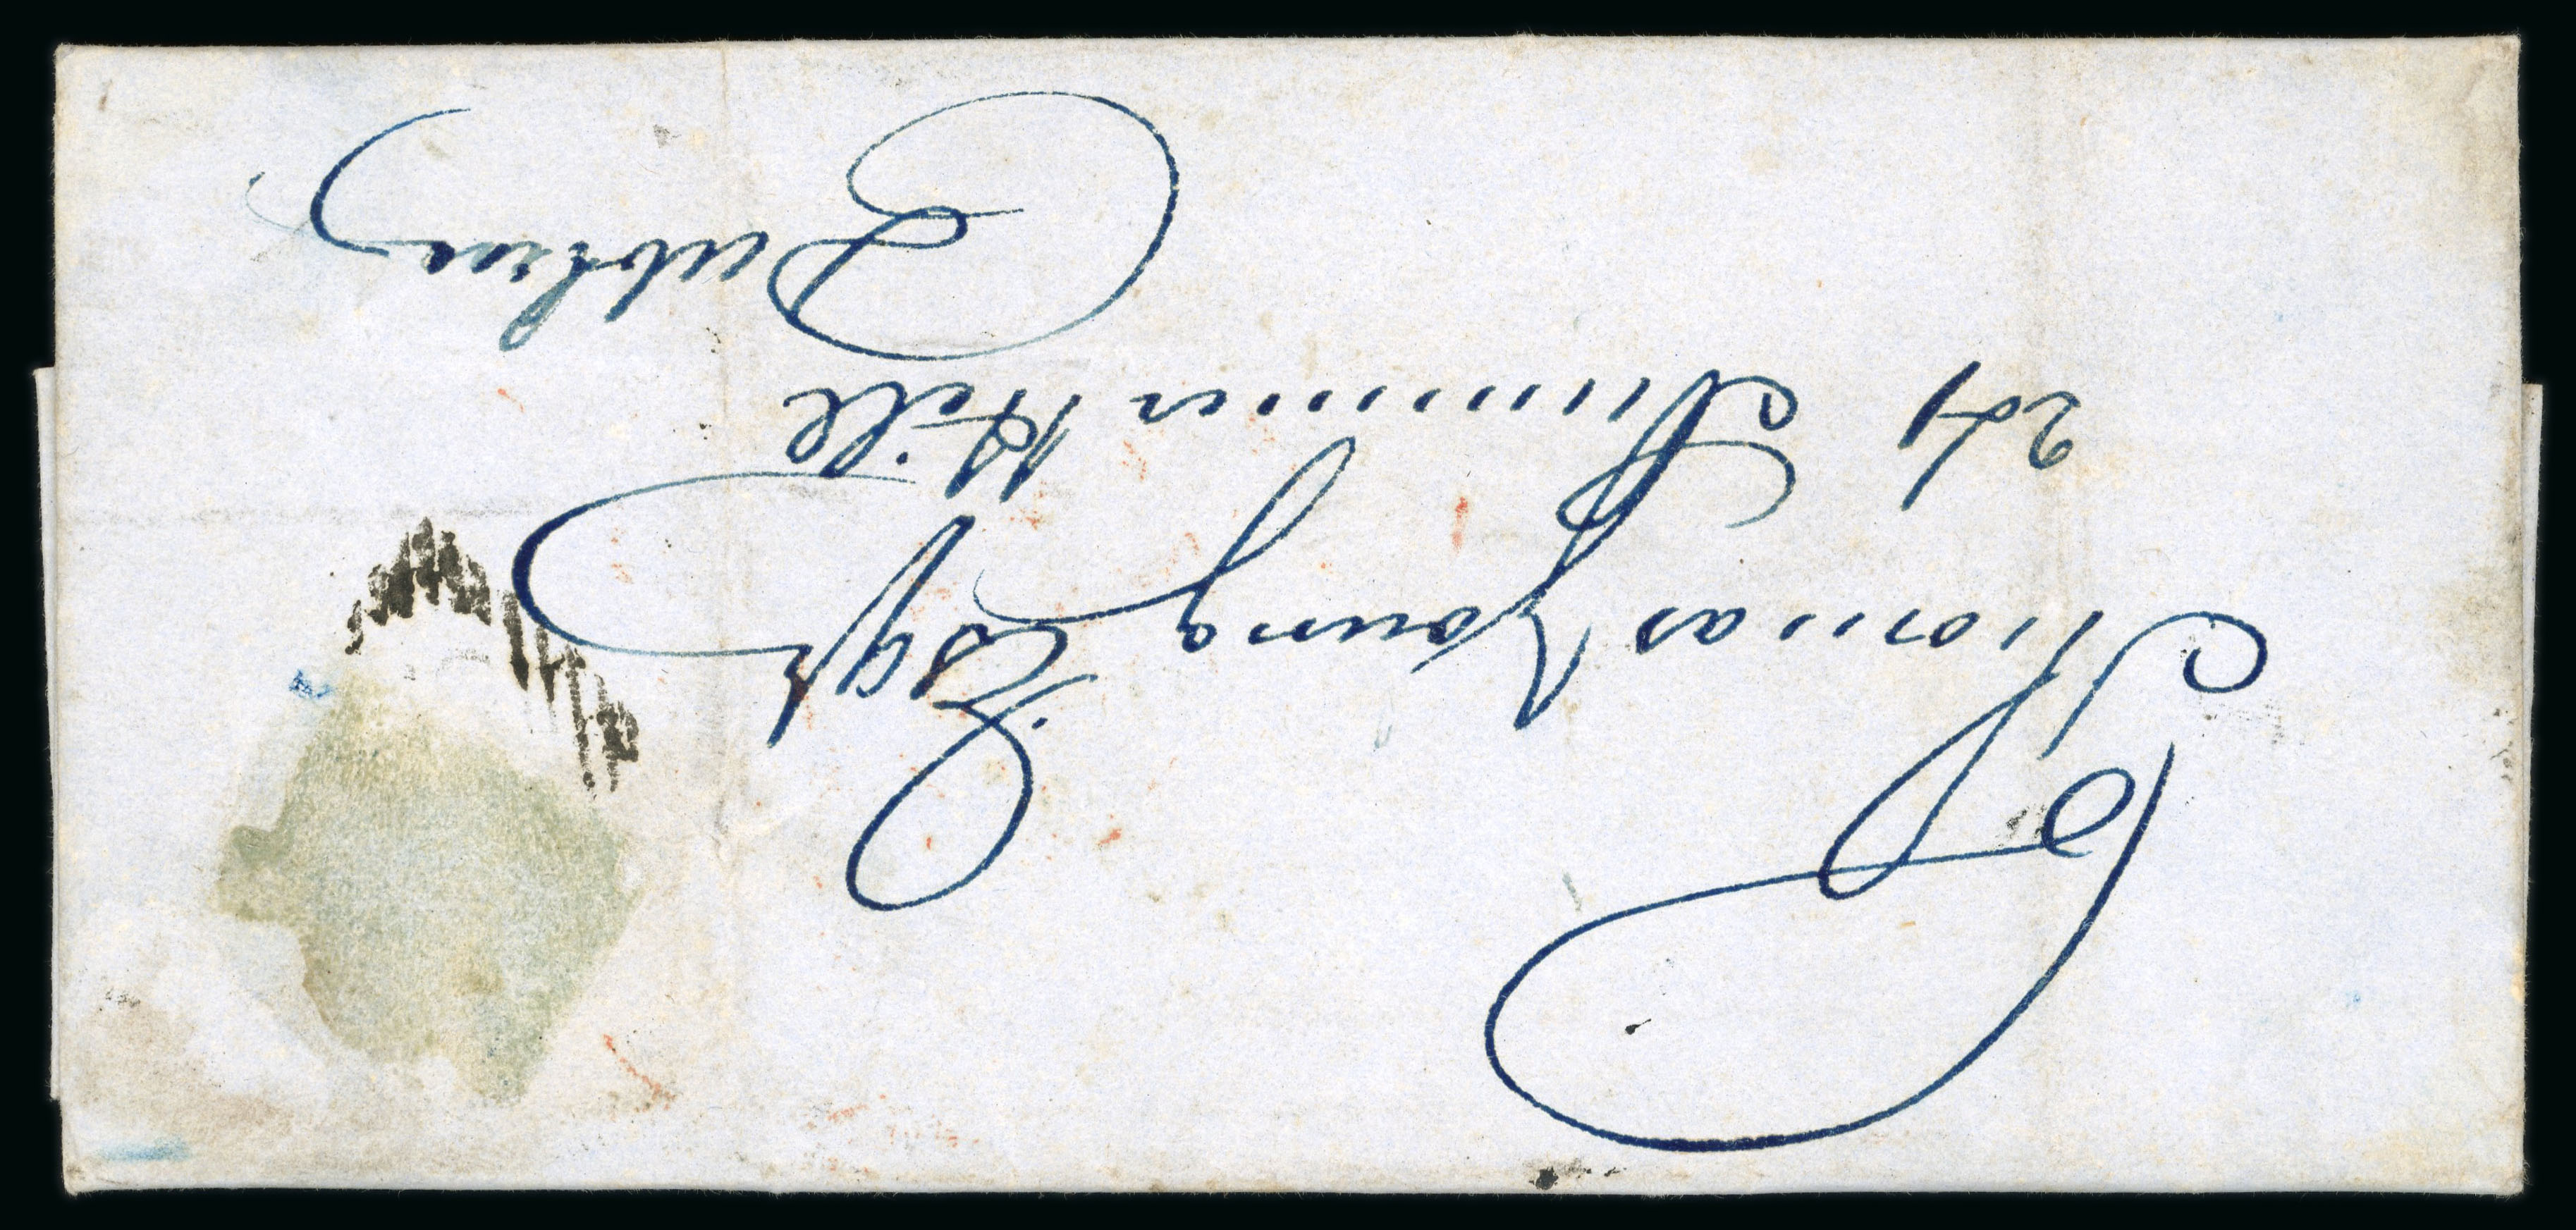 Thomas Young Esqr
24 Summer Hill
Dublin